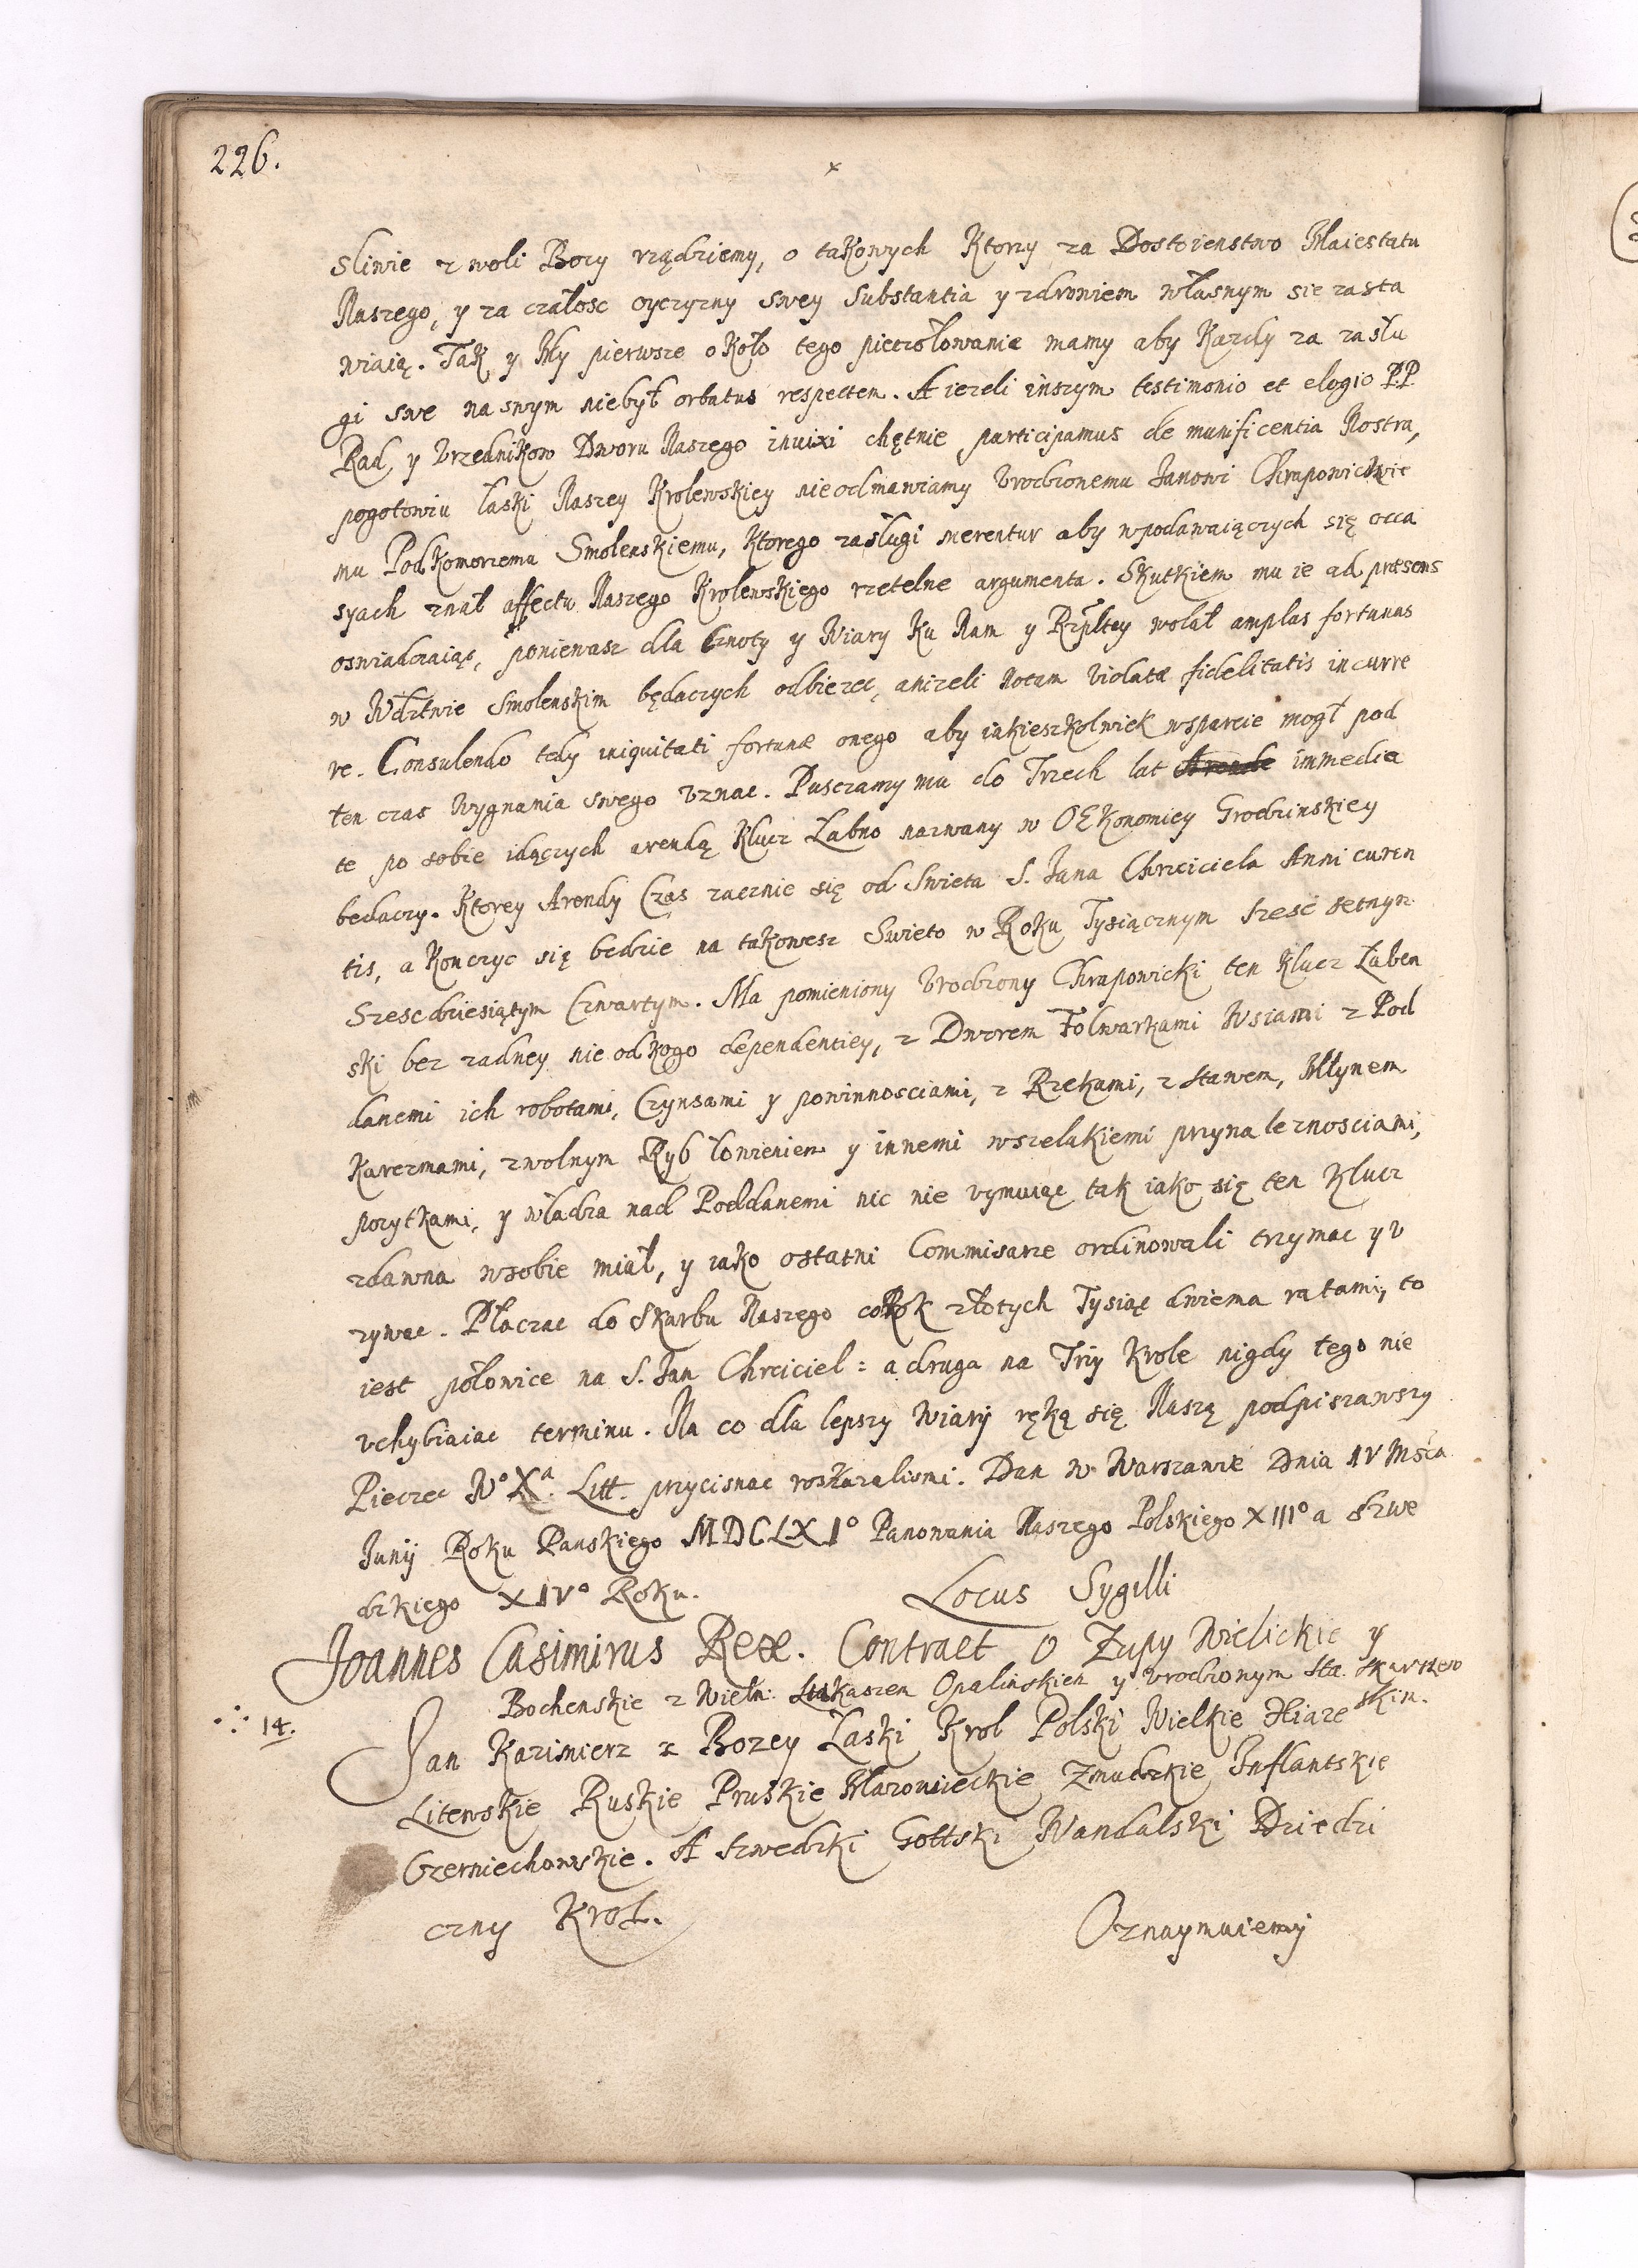 226.
sliwie z woli Bozy rządziemy, o takowych Ktorzy za Dostoienstwo Maiestatu
Naszego, y za czałosc oyczyzny swey substantia y zdrowiem własnym sie zasta
wiaią. Tak y My pierwsze około tego pieczołowanie mamy aby Kazdy za zasłu
gi swe na swym niebył orbatus respectem. A iezeli inszym testimonio et elogio P.P
Rad, y Vrzednikow Dworu Naszego inuixi chętnie participamus de munificentia Nostra,
pogotowiu łaski Naszey Krolewskiey nieodmawiamy Vrodzonemu Janowi Chrapowickie
mu PodKomorzemu Smolenskiemu, Ktorego zasługi merentur aby wpodawaiączych się occa
syach znał affectu Naszego Krolewskiego rzetelne argumenta. Skutkiem mu ie ad præsens
oswiadczaiąc, poniewasz dla Cnoty y Wiary Ku Nam y Rzpltey wolał amplas fortunas
w Wdztwie Smolenskim będaczych odbiezec, anizeli Notam Violatæ fidelitatis incurre
re. Consulendo tedy iniquitati fortunæ onego aby iakieszkolwiek wsparcie mogł pod
ten czas Wygnania swego Vznac. Pusczamy mu do Trzech lat Arende immedia
te po sobie idączych arendą Klucz Łabno nazwany w OEkonomiey Grodzinskiey
bedaczy. Ktorey Arendy Czas zacznie się od Swieta S. Jana Chrzciciela Anni curen
tis, a Konczyc się bedzie na takowesz Swieto w Roku Tysiącznym szesc setnym
Szescdziesiątym Czwartym. Ma pomieniony Vrodzony Chrapowicki ten Klucz Łaben
ski bez zadney nie od kogo dependentiey, z Dworem Folwarkami Wsiami z Pod
danemi ich robotami, Czynsami y powinnosciami, z Rzekami, z stawem, Młynem
Karczmami, zwolnym Ryb łowieniem y innemi wszelakiemi przynaleznosciami,
pozytkami, y władza nad Poddanemi nic nie vymuiąc tak iako się ten Klucz
zdawna wsobie miał, y iako ostatni Commisarze ordinowali trzymac y v
zywac. Płaczac do Skarbu Naszego coRok złotych Tysiąc dwiema ratami, to
iest połowice na S. Jan Chrciciel: a druga na Trzy Krole nigdy tego nie
vchybiaiac terminu. Na co dla lepszy Wiary ręką się Naszą podpisawszy
Pieczec Wo Xa. Litt. przycisnac roskazalismi. Dan w Warszawie Dnia IV Msca
Junij Roku Panskiego MDCLXIo Panowania Naszego Polskiego XIIIo a szwe
dzkiego XIVo Roku.
Locus Sygilli
Joannes Casimirus Rex. Contract o Zupy Wielickie y
Bochenskie z Wielm: Łukaszem Opalinskiem y Vrodzonym Sta. Skarszew
skim.
14.
Jan Kazimierz z Bozey Łaski Krol Polski Wielkie Xiaze
Litewskie Ruskie Pruskie Mazowieckie Zmudzkie Inflantskie
Czerniechowskie. A szwedzki Gottski Wandalski Dziedzi
czny Krol.
Oznaymuiemy